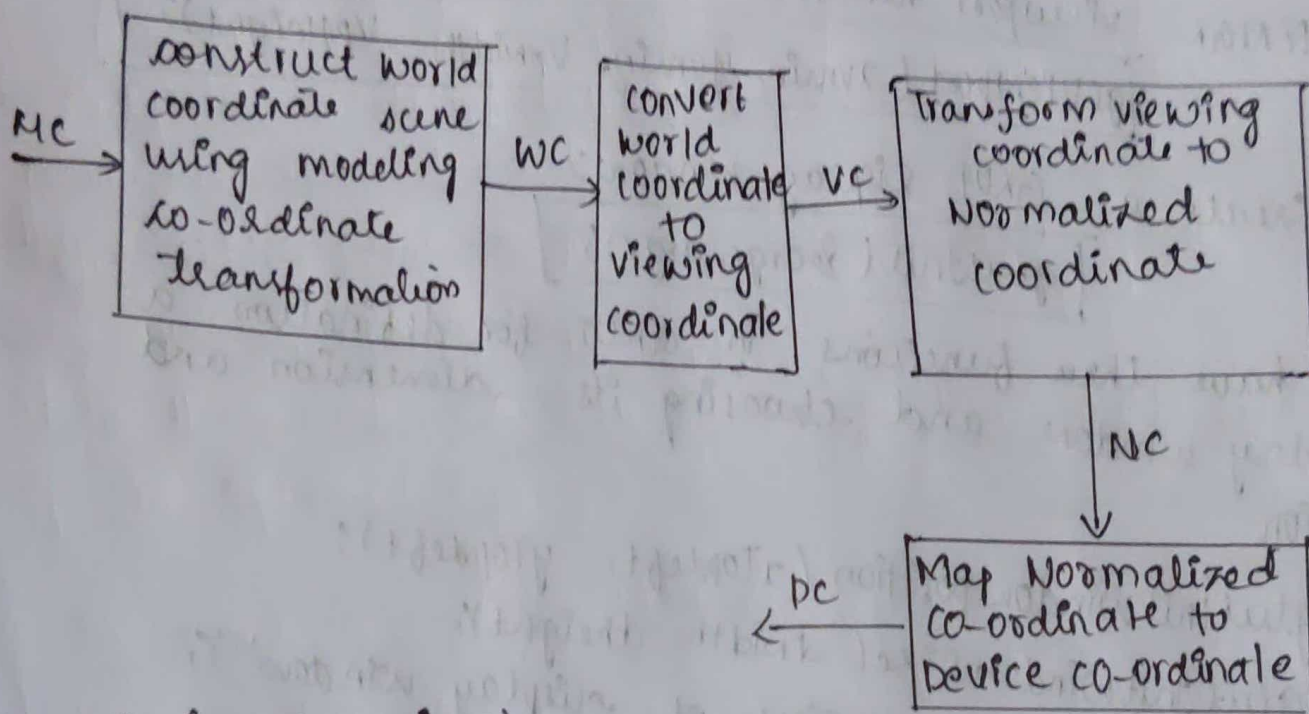 MC
construct world
coordinate scene
using modeling
co-ordinate
transformation
WC
convert
world
coordinate
to
viewing
coordinate
VC
Transform viewing
coordinate to
Normalized
coordinate
NC
Map Normalized
co-ordinate to
Device co-ordinate
DC